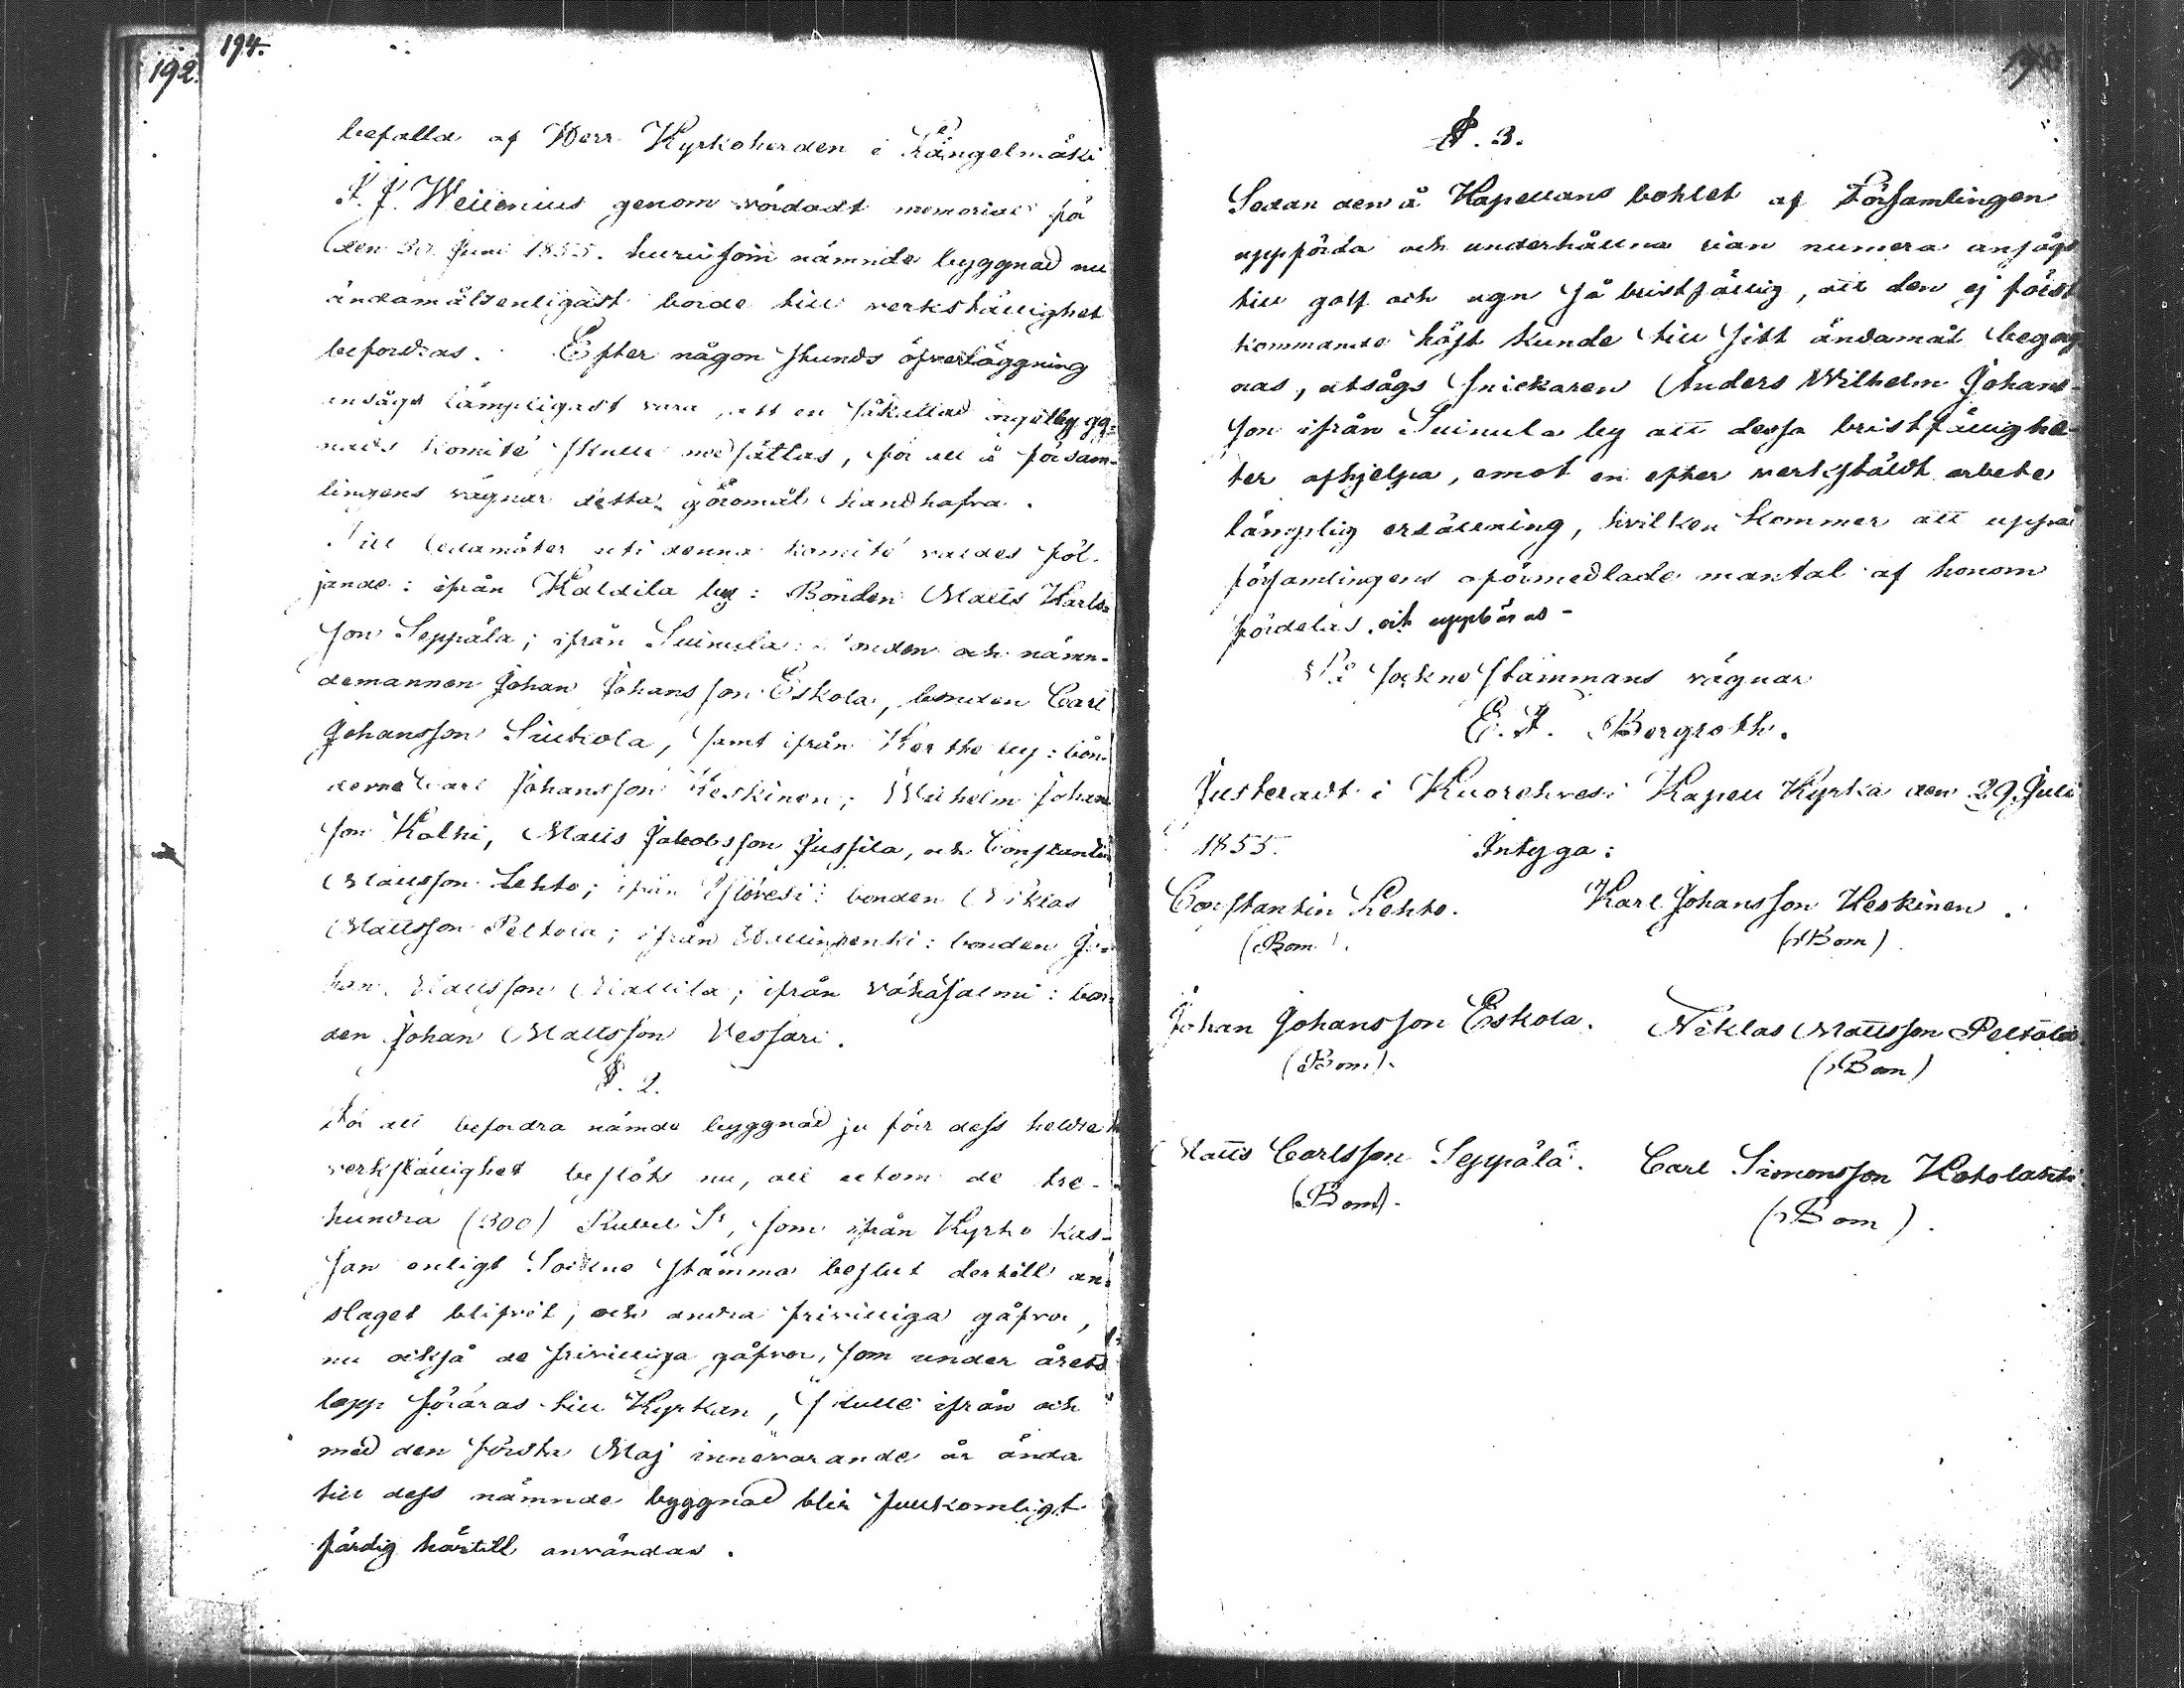 192.
194.
befalla af Herr Kyrkoherden i Längelmäki
genom vördadt memorial på
den 30 Juni 1855. huru som nämnde byggnad nu
ändamålsenligast borde till verkställighet
befordras. Efter någon stunds öfverläggning
ansågs lämpligast vara, att en såkallad orgelbygg-
nads komité skulle nedsättas, för att å försam-
lingens vägnar detta göromål handhafva.
Till ledamöter uti denna komité valdes föl-
jande: ifrån Haldila by: Bonden Matts Karls-
son Seppälä; ifrån Suinula: bonden och nämn-
demannen Johan Johansson Eskola, bonden Carl
Johansson Siukola, samt ifrån by: bön-
derne Carl Johansson Heskinen, Wilhelm Johans
son Kalki, Matts Jakobsson Jussila, och Constantin
Mattsson Lehto; ifrån bonden Niklas
Mattsson Peltola; ifrån bonden Jo-
han Mattsson Mattila; ifrån Vähäsalmi: bon-
den Johan Mattsson Vessari.
§. 2.
För att befordra nämde byggnad ju förr dess heldre
verkställighet beslöts nu, att utom de tre-
hundra (300) Rubel Sr, som ifrån Kyrko kas-
san enligt Sockne stämma beslut dertill an-
slaget blifvit, och andra frivilliga gåfvor,
nu också de frivilliga gåfvor, som under årets
lopp föräras till Kyrkan, skulle ifrån och
med den första Maj innevarande år ända
till dess nämnde byggnad blir fullkomligt
färdig härtill användas.
§. 3.
Sedan den å Kapellans bohlet af Församlingen
uppförda och underhållna rian numera ansågs
till golf och ugn så bristfällig, att den ej först
kommande höst kunde till sitt ändamål begag
nas, utsågs snickaren Anders Wilhelm Johans-
son ifrån Suinula by att dessa bristfällighe-
ter afhjelpa, emot en efter verkstäldt arbete
lämplig ersättning, hvilken kommer att uppå
församlingens oförmedlade mantal af honom
fördelas och uppbäras -
På sockne stämmans vägnar
E. F. Bergroth.
Justeradt i Kuorehvesi Kapell Kyrka den 29 Juli
1855. Intyga:
Constantin Lehto. Karl Johansson Heskinen.
(Bom). (Bom).
Johan Johansson Eskola. Niklas Mattsson Peltola
(Bom). (Bom)
Matts Carlsson Seppälä. Carl Simonsson
(Bom). (Bom).